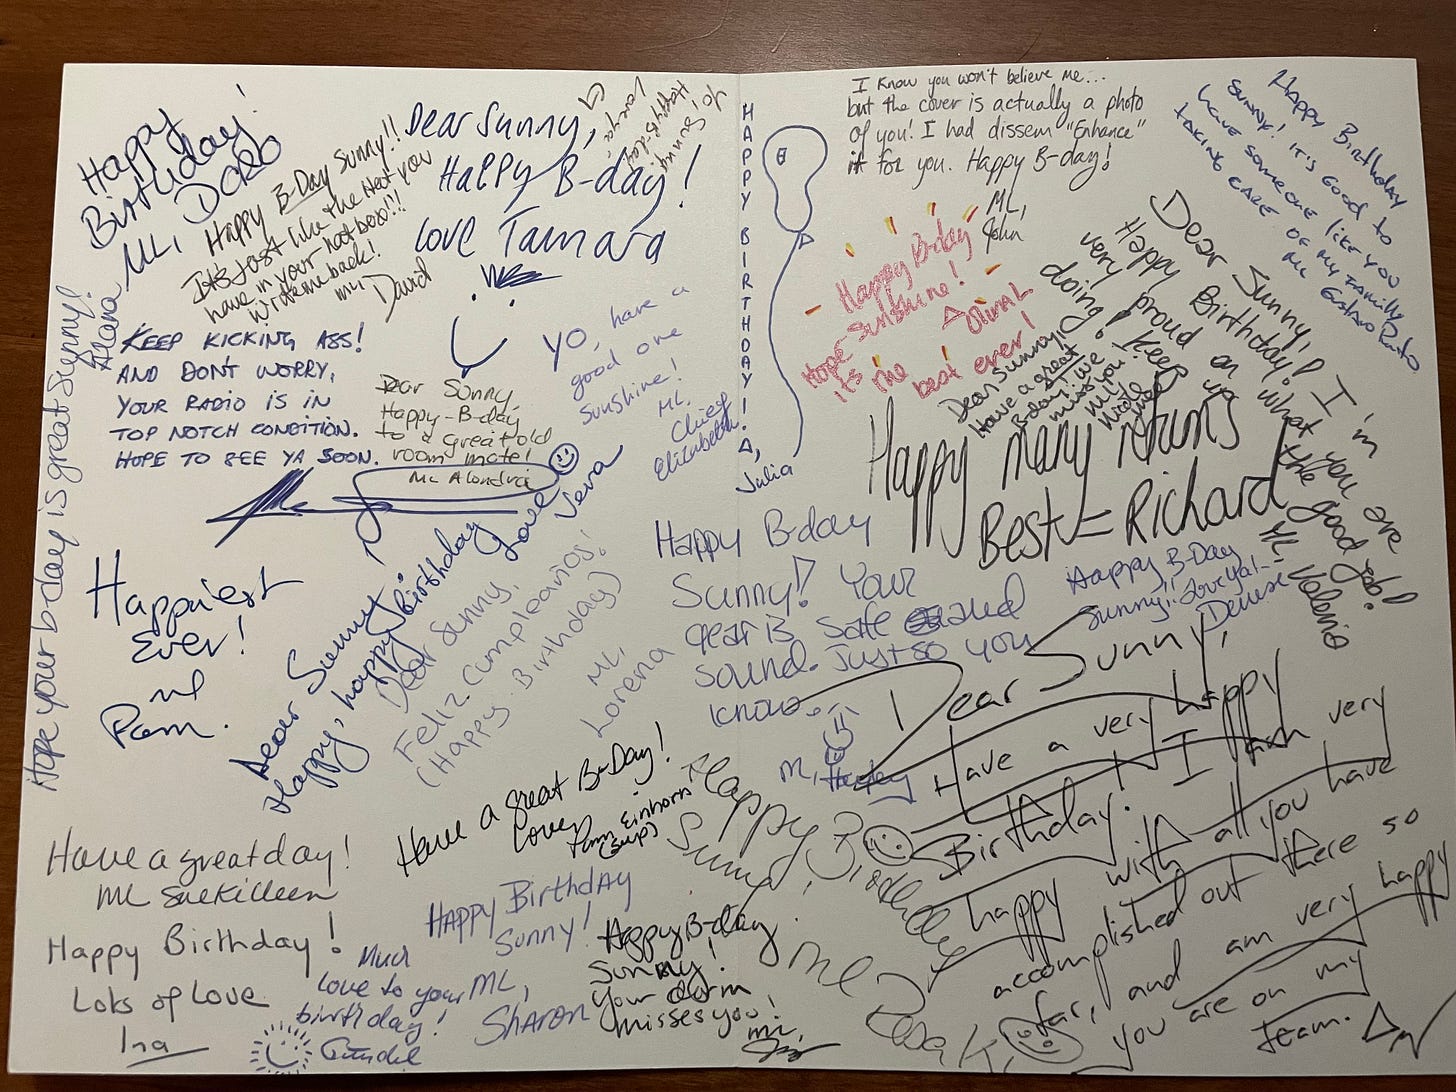 Happy
Birthday!
ML, DaRo
Happy B-Day Sunny!!!
It's just like the Host you
have in your not boss!!!
Write me back!
ML, David
Dear Sunny,
Happy B-day!
Love Tamara
yo, Sunny!
Happy B-day
KEEP KICKING ASS!
AND DONT WORRY,
YOUR RADIO IS IN
TOP NOTCH CONDITION.
HOPE TO SEE YA SOON.
Dear Sunny
Happy-B-day
to a great old
room mate!
ML Alondra
Yo, have a
good one
Sunshine!
ML,
Chief
Elizabeth
Hope your b-day is great Sunny!
Alana
Happiest
Ever!
ML
Pam.
Dear Sunny
Happy, happy Birthday
Love Vera
Dear Sunny,
Feliz Cumpleaños!
(Happy Birthday)
ML,
Lorena
Have a great B-Day!
Love,
Pam Einhorn
(sup)
Have a great day!
ML Sue Killeen
Happy Birthday!
Lots of Love
Ina
Much
love to your
birthday!
Happy Birthday
Sunny!
ML,
Sharon
Happy B-day
Sunny!
Your dorm
misses you!
ML,
HAPPY BIRTHDAY!!
Julia
I know you won't believe me...
but the cover is actually a photo
of you! I had dissem "Enhance"
it for you. Happy B-day!
ML,
John
Happy B-day
Sunshine!
Hope
its the best ever!
Happy Birthday
Sunny! It's good to
have someone like you
taking care of my family
ML Gustavo
Dear Sunny,
Happy Birthday! I'm
very proud on what you are
doing! Keep up the good job!
ML Valerio
Dear Sunny,
Have a great
B-day! We
miss you!
ML
Happy many returns
Best = Richard
Happy B-day
Sunny! Your
gear is safe and
sound. Just so you
know.
ML, Harley
Happy B-Day
Sunny!! Love ya!
Denise
Happy Birthday
Sunny!
ML
Dear Sunny,
Have a very happy
Birthday! I am very
happy with all you have
accomplished out there so
far, and am very happy
you are on my
team.